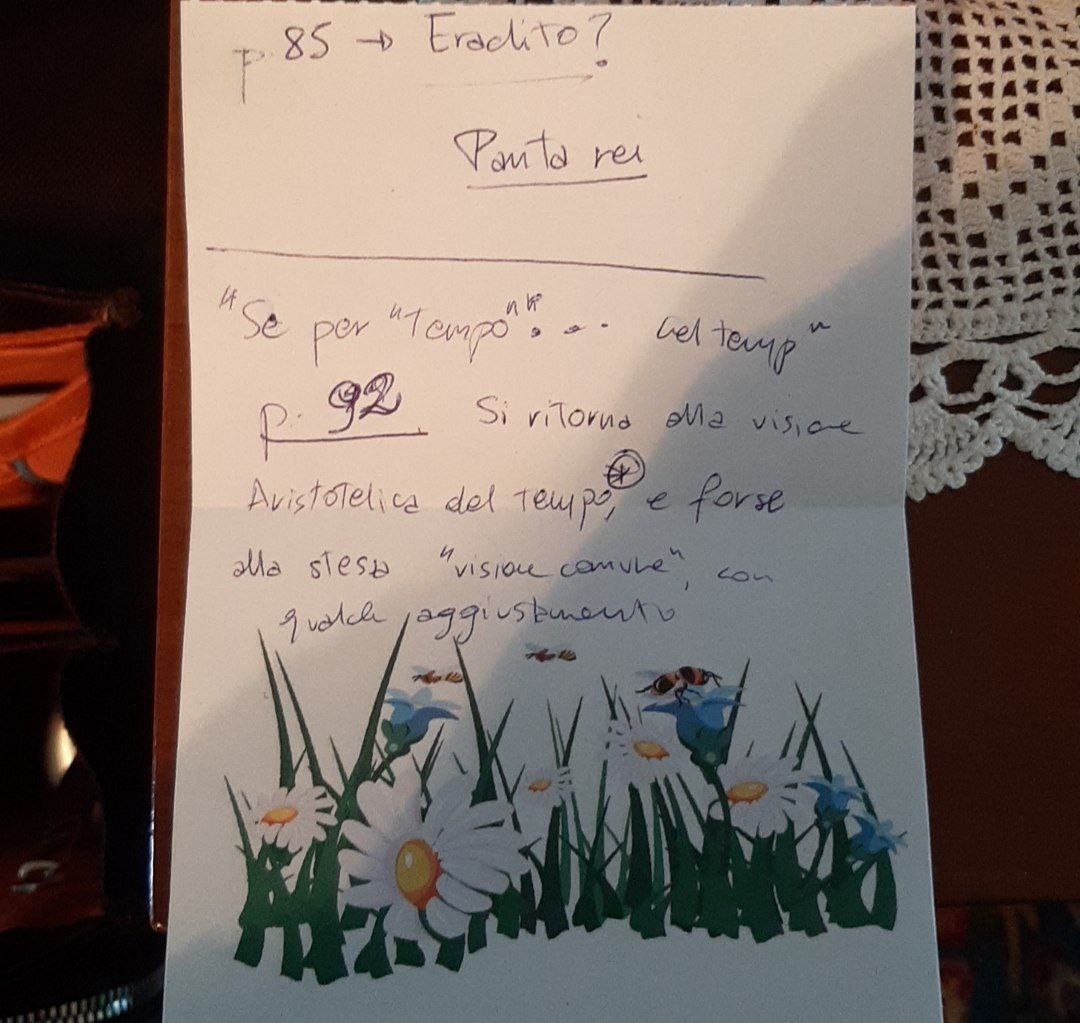 p. 85 → Eraclito?
Panta rei
"Se per "Tempo"" . . . nel temp"
p. 92 Si ritorna alla visione
Aristotelica del tempo, e forse
alla stessa "visione comune", con
qualche aggiustamento